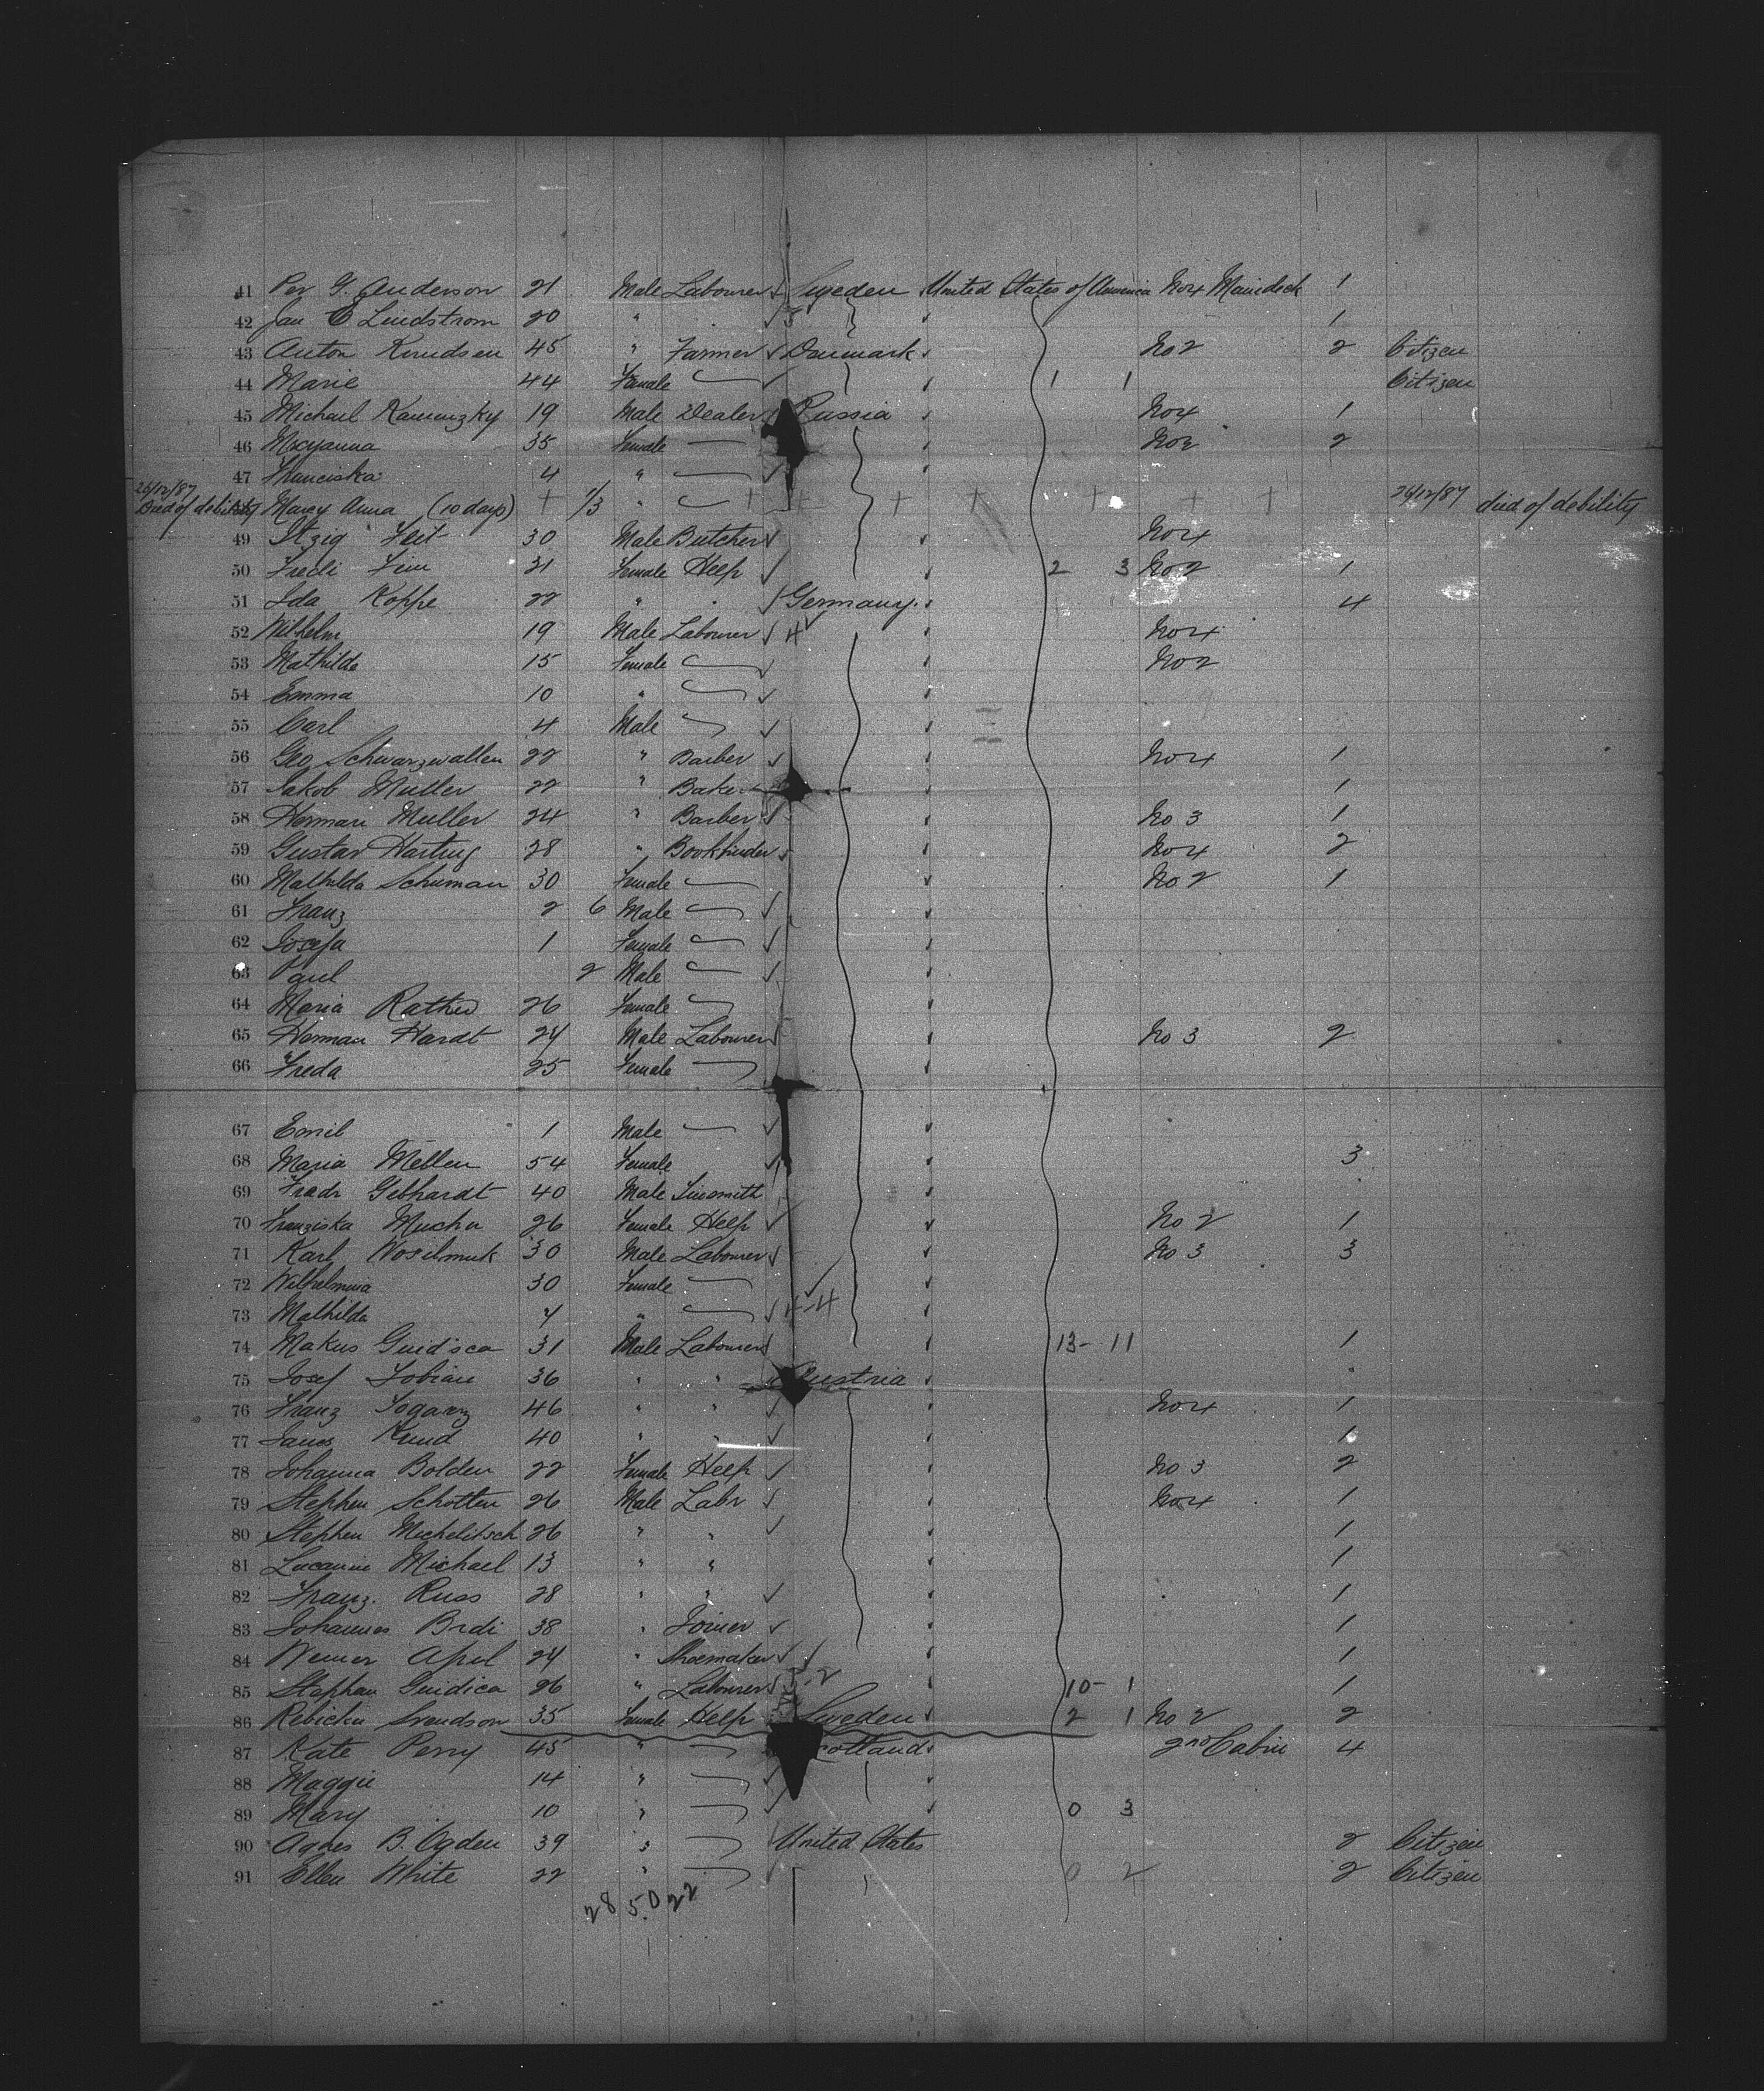 41 Per G. Anderson 21 Male Labourer Sweden United States of America No 4 Maindeck 1
42 Jan C Lindstrom 20 " 1
43 Anton Knudsen 45 " Farmer Denmark No 2 2 Citizen
44 Marie 44 Female 1 1 Citizen
45 Michael Kamenzky 19 Male Dealer Russia No 4 1
46 35 Female No 2 2
47 Franciska 4 "
26/12/87
Died of debility Mary Anna (10 days) 1/3 " 26/12/87 died of debility
49 Itzig Feit 30 Male Butcher No 4
50 31 Female Help 2 3 No 2 1
51 Ida Koppe 22 " Germany 4
52 Wilhelm 19 Male Labourer 4 No 4
53 Mathilde 15 Female No 2
54 Emma 10 "
55 Carl 4 Male
56 Geo Schwarzwallen 22 " Barber No 4 1
57 Jakob Muller 22 " Baker 1
58 Herman Muller 24 " Barber No 3 1
59 Gustav Hartug 28 " Bookbinder No 4 2
60 Mathilda Schuman 30 Female No 2 1
61 Franz 2 6 Male
62 Josefa 1 Female
63 Paul 2 Male
64 Maria 26 Female
65 Herman Hardt 24 Male Labourer No 3 2
66 Freda 25 Female
67 Emil 1 Male
68 Maria 54 Female 3
69 Fredr Gebhardt 40 Male Tinsmith
70 Franziska Mucha 26 Female Help No 2 1
71 Karl Wosilmuk 30 Male Labourer No 3 3
72 Wilhelmina 30 Female
73 Mathilda " 4-4
74 Makus Guidica 31 Male Labourer 13- 11 1
75 Josef Tobian 36 " " Austria
76 Franz 46 " " No 4 1
77 40 " " 1
78 Johanna Bolden 22 Female Help No 3 2
79 Stephen Schotten 26 Male Labr No 4 1
80 Stephen Michelitsch 26 " " 1
81 Michael 13 " " 1
82 Franz Russ 28 " " 1
83 Johannes 38 " Joiner 1
84 Werner April 24 " Shoemaker 1
85 Stephan Guidica 26 " Labourer 10- 1 1
86 Rebicka Svendson 35 Female Help Sweden 2 1 No 2 2
87 Kate Perry 45 " Scotland 2nd Cabin 4
88 Maggie 14 "
89 Mary 10 " 0 3
90 Agnes B. Ogden 39 " United States 2 Citizen
91 Ellen White 22 " 0 2 2 Citizen
28 50 22